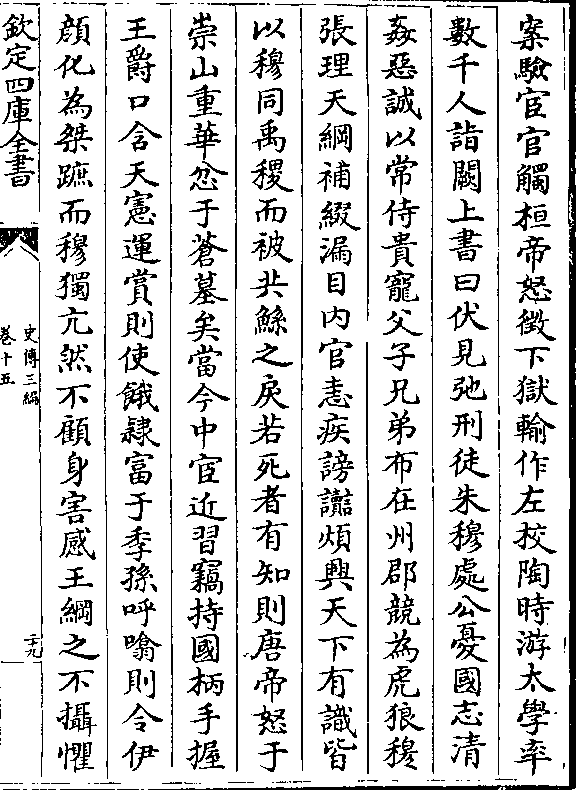 案驗宦官觸桓帝怒徵下獄輸作左校陶時游太學率
數千人詣闕上書曰伏見弛刑徒朱穆處公憂國志清
姦惡誠以常侍貴寵父子兄弟布在州郡競為虎狼穆
張理天綱補綴漏目内官恚疾謗讟煩興天下有識皆
以穆同禹稷而被共鯀之戾若死者有知則唐帝怒于
崇山重華忿于蒼墓矣當今中宦近習竊持國柄手握
王爵口含天憲運賞則使餓𨽻富于季孫呼噏則令伊
顔化為桀蹠而穆獨亢然不顧身害感王綱之不攝懼
欽定四庫全書
史傳三編
卷十五
二十九